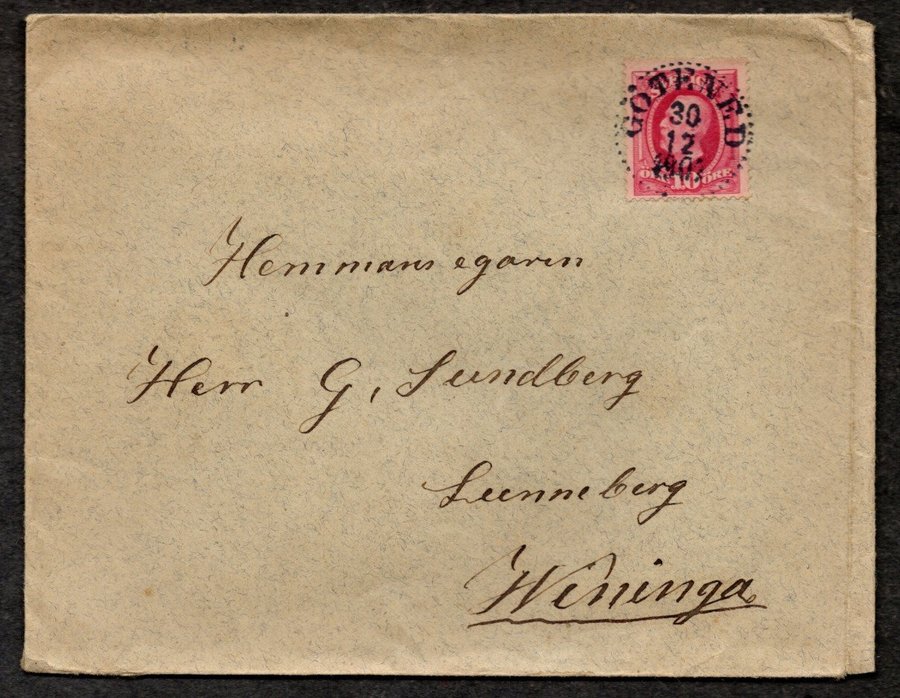 GOTENED
30
12
ÖRE 10 ÖRE
Hemmansegaren
Herr G, Sundberg
Lunneberg
Weninga